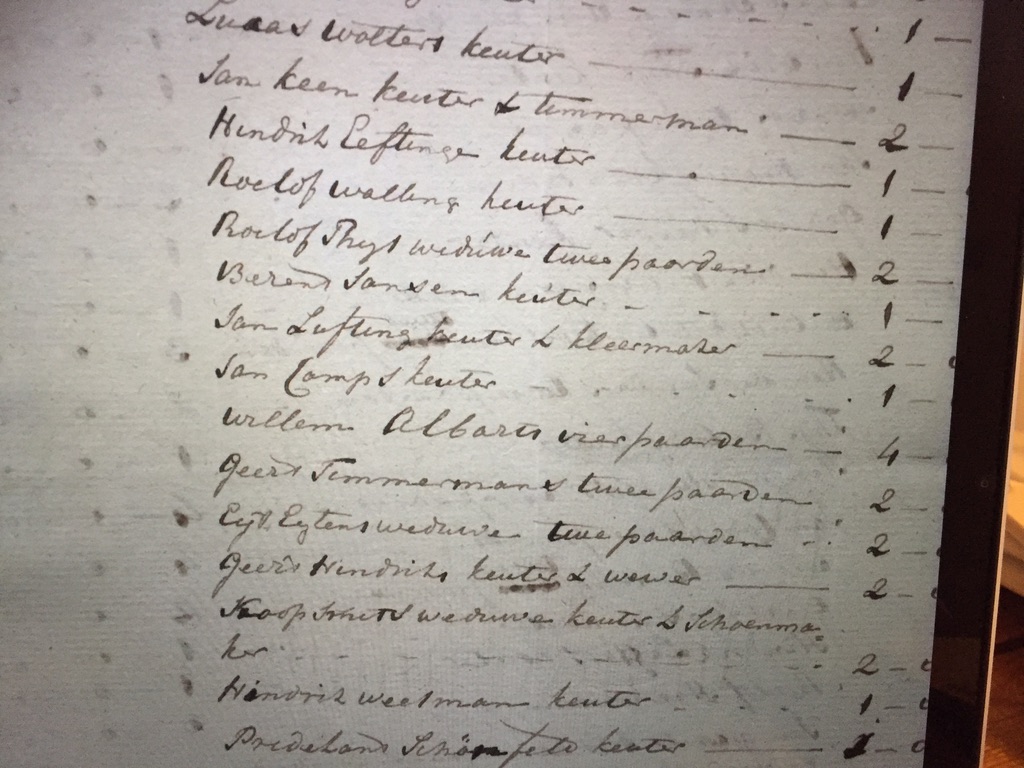 Lucas wolters keuter 1 —
Jan keen keuter & timmerman 1 —
Hindrik Eeftinge keuter 2 —
Roelof walling keuter 1 —
Roelof Thijs weduwe twee paarden 1 —
Berend Jansen keuter 2 —
Jan Lufting keuter & kleermaker 1 —
Jan Camps keuter 2 —
willem Albarts vier paarden 1 —
Geert Timmermans twee paarden 4 —
Eyt. Eytens weduwe twee paarden 2 —
Geert Hindriks keuter & wewer 2 —
Koop smits weduwe keuter & Schoenma= 2 —
ker 2 —
Hindrik weelman keuter 1 —
Schönfeld keuter 1 —